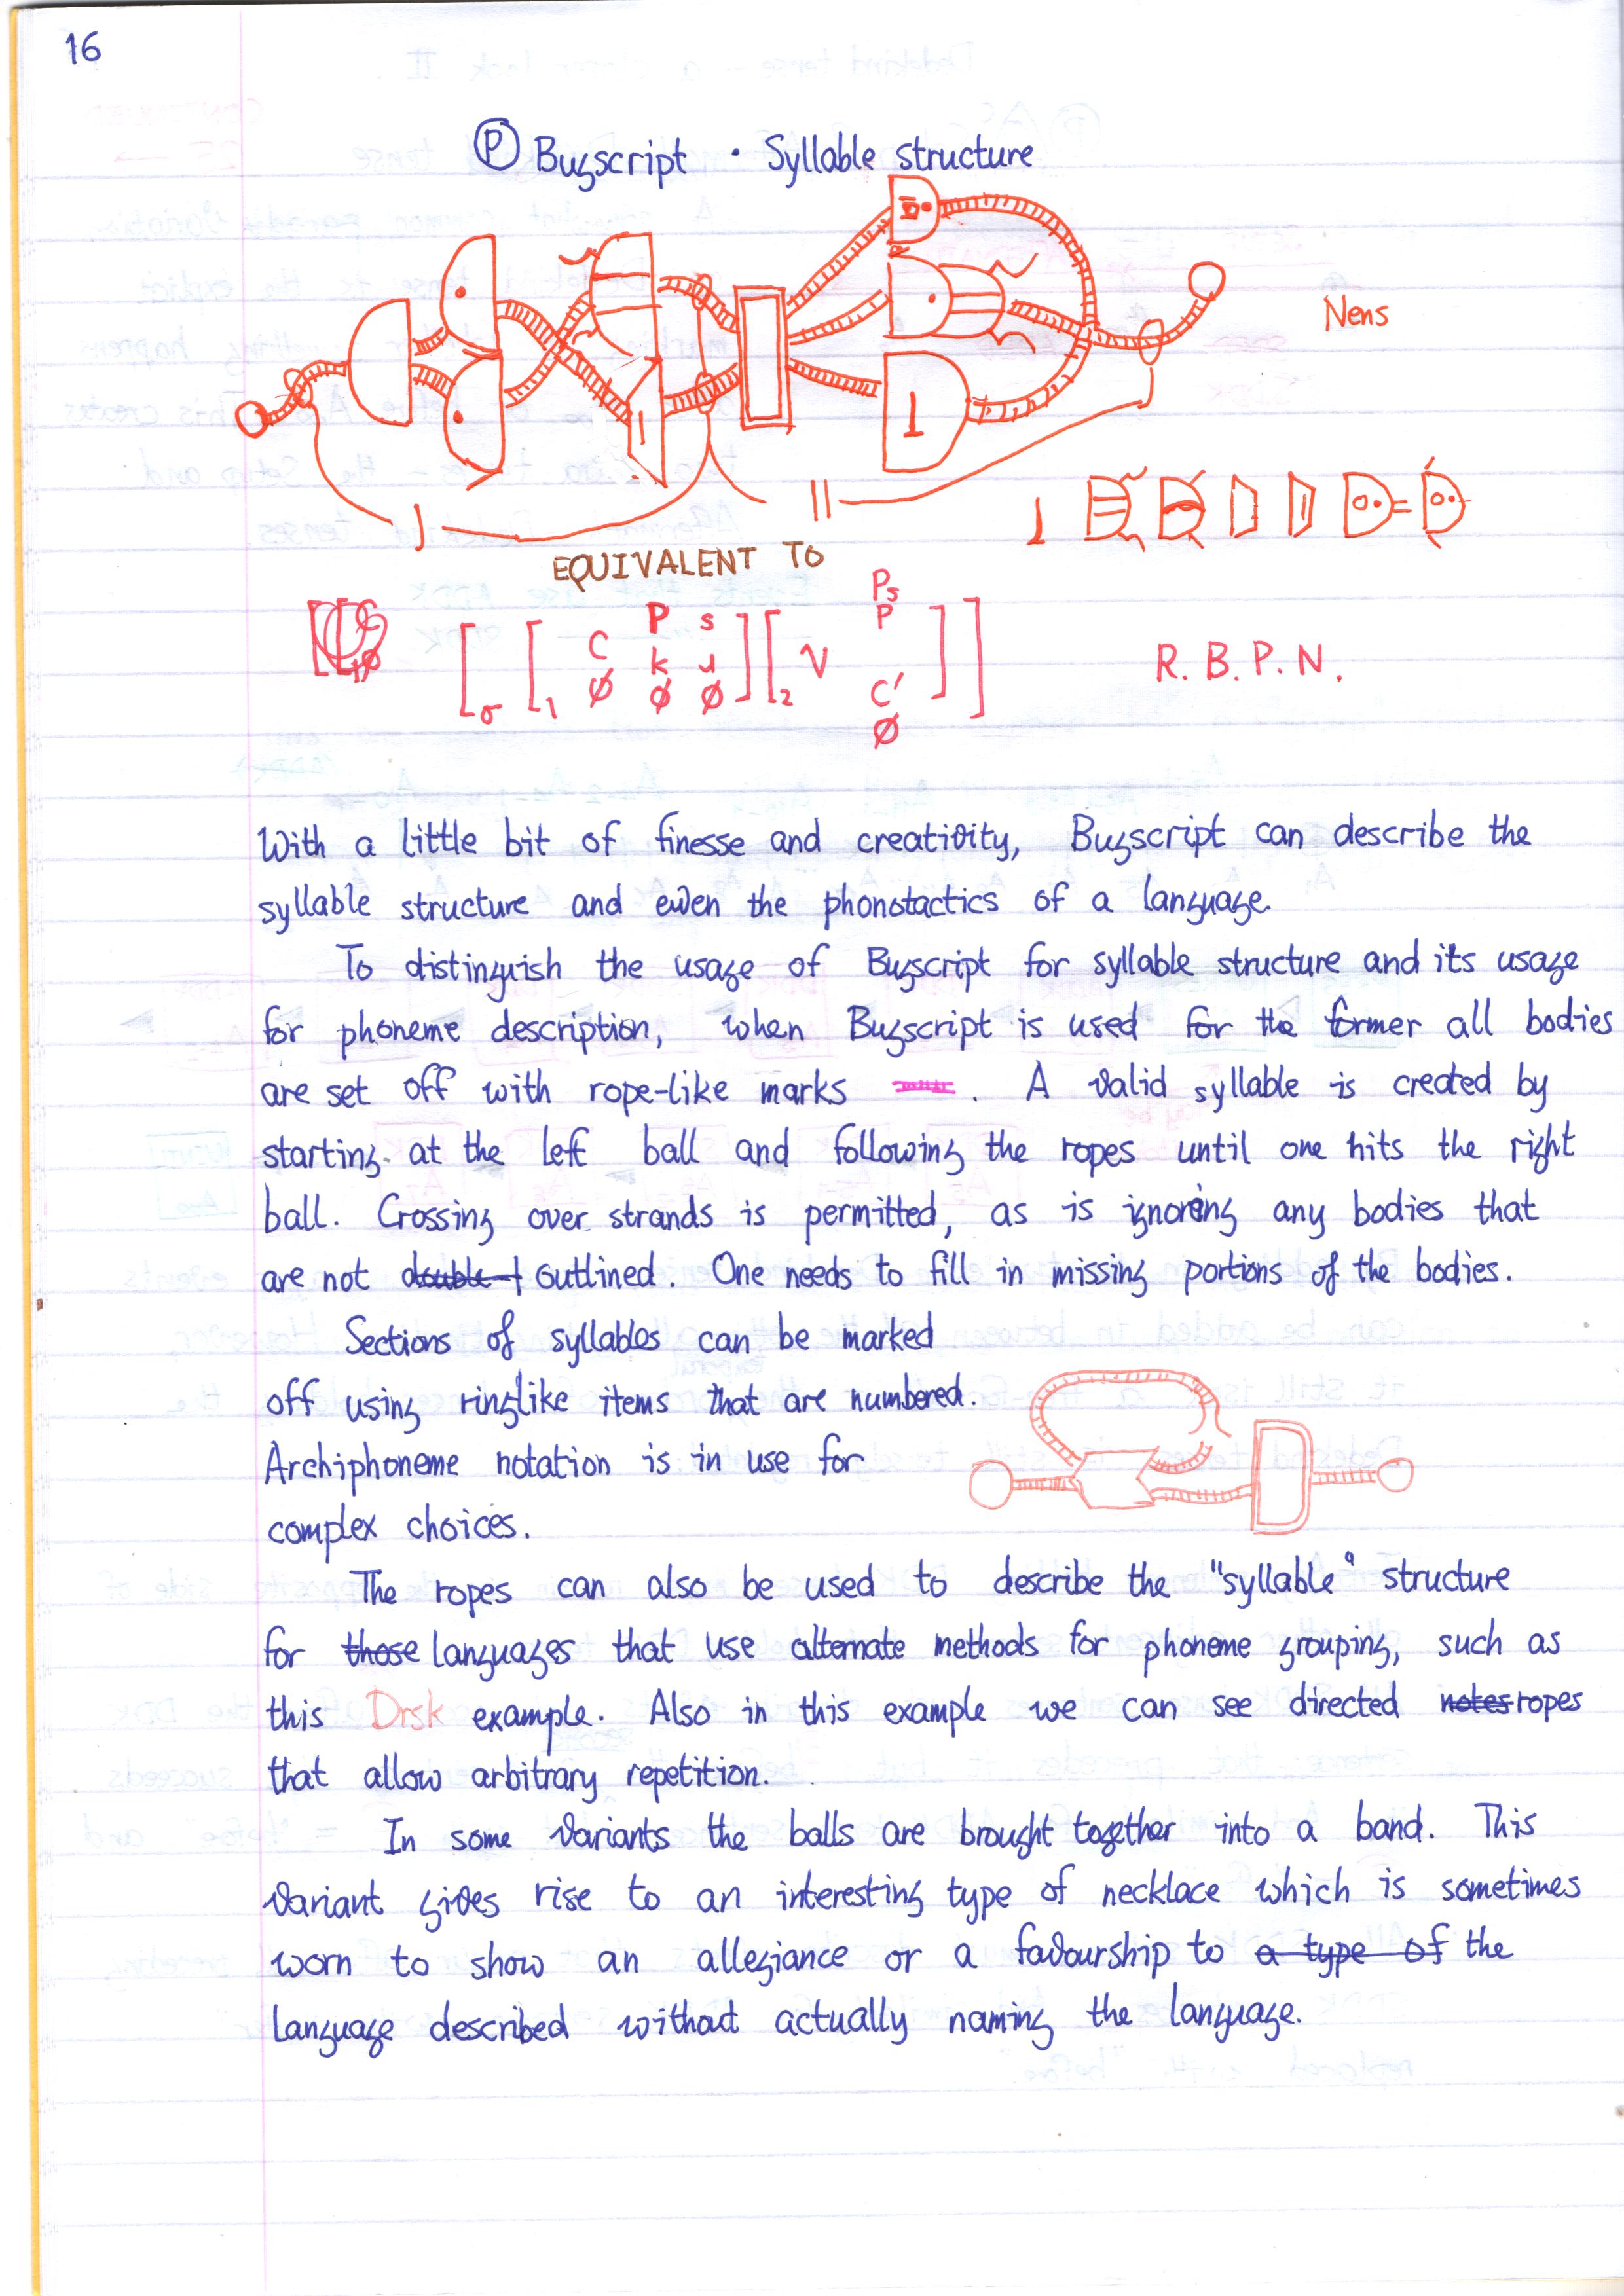 16
Ⓟ Bugscript · Syllable structure
Nens
I
II
EQUIVALENT TO
[σ [1 C ∅ P k ∅ s ɹ ∅ ] [2 V Ps P C' ∅ ] ]
R. B. P. N.
With a little bit of finesse and creativity, Bugscript can describe the
syllable structure and even the phonotactics of a language.
To distinguish the usage of Bugscript for syllable structure and its usage
for phoneme description, when Bugscript is used for the former all bodies
are set off with rope-like marks . A valid syllable is created by
starting at the left ball and following the ropes until one hits the right
ball. Crossing over strands is permitted, as is ignoring any bodies that
are not double-t outlined. One needs to fill in missing portions of the bodies.
Sections of syllables can be marked
off using ringlike items that are numbered.
Archiphoneme notation is in use for
complex choices.
The ropes can also be used to describe the "syllable" structure
for those languages that use alternate methods for phoneme grouping, such as
this Drsk example. Also in this example we can see directed notes ropes
that allow arbitrary repetition.
In some variants the balls are brought together into a band. This
variant gives rise to an interesting type of necklace which is sometimes
worn to show an allegiance or a favourship to a type of the
language described without actually naming the language.